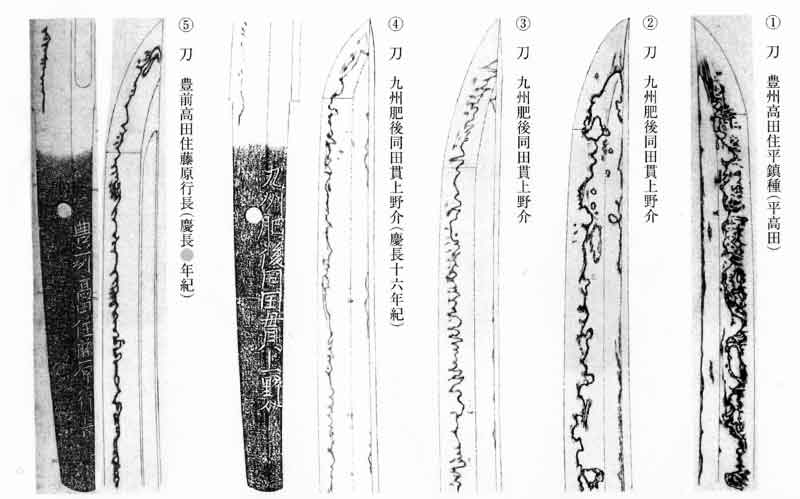 ① 刀 豊州高田住平鎮種(平高田)
② 刀 九州肥後同田貫上野介
③ 刀 九州肥後同田貫上野介
④ 刀 九州肥後同田貫上野介(慶長十六年紀)
九州肥後同田貫上野介
⑤ 刀 豊前高田住藤原行長(慶長●年紀)
豊前高田住藤原行長